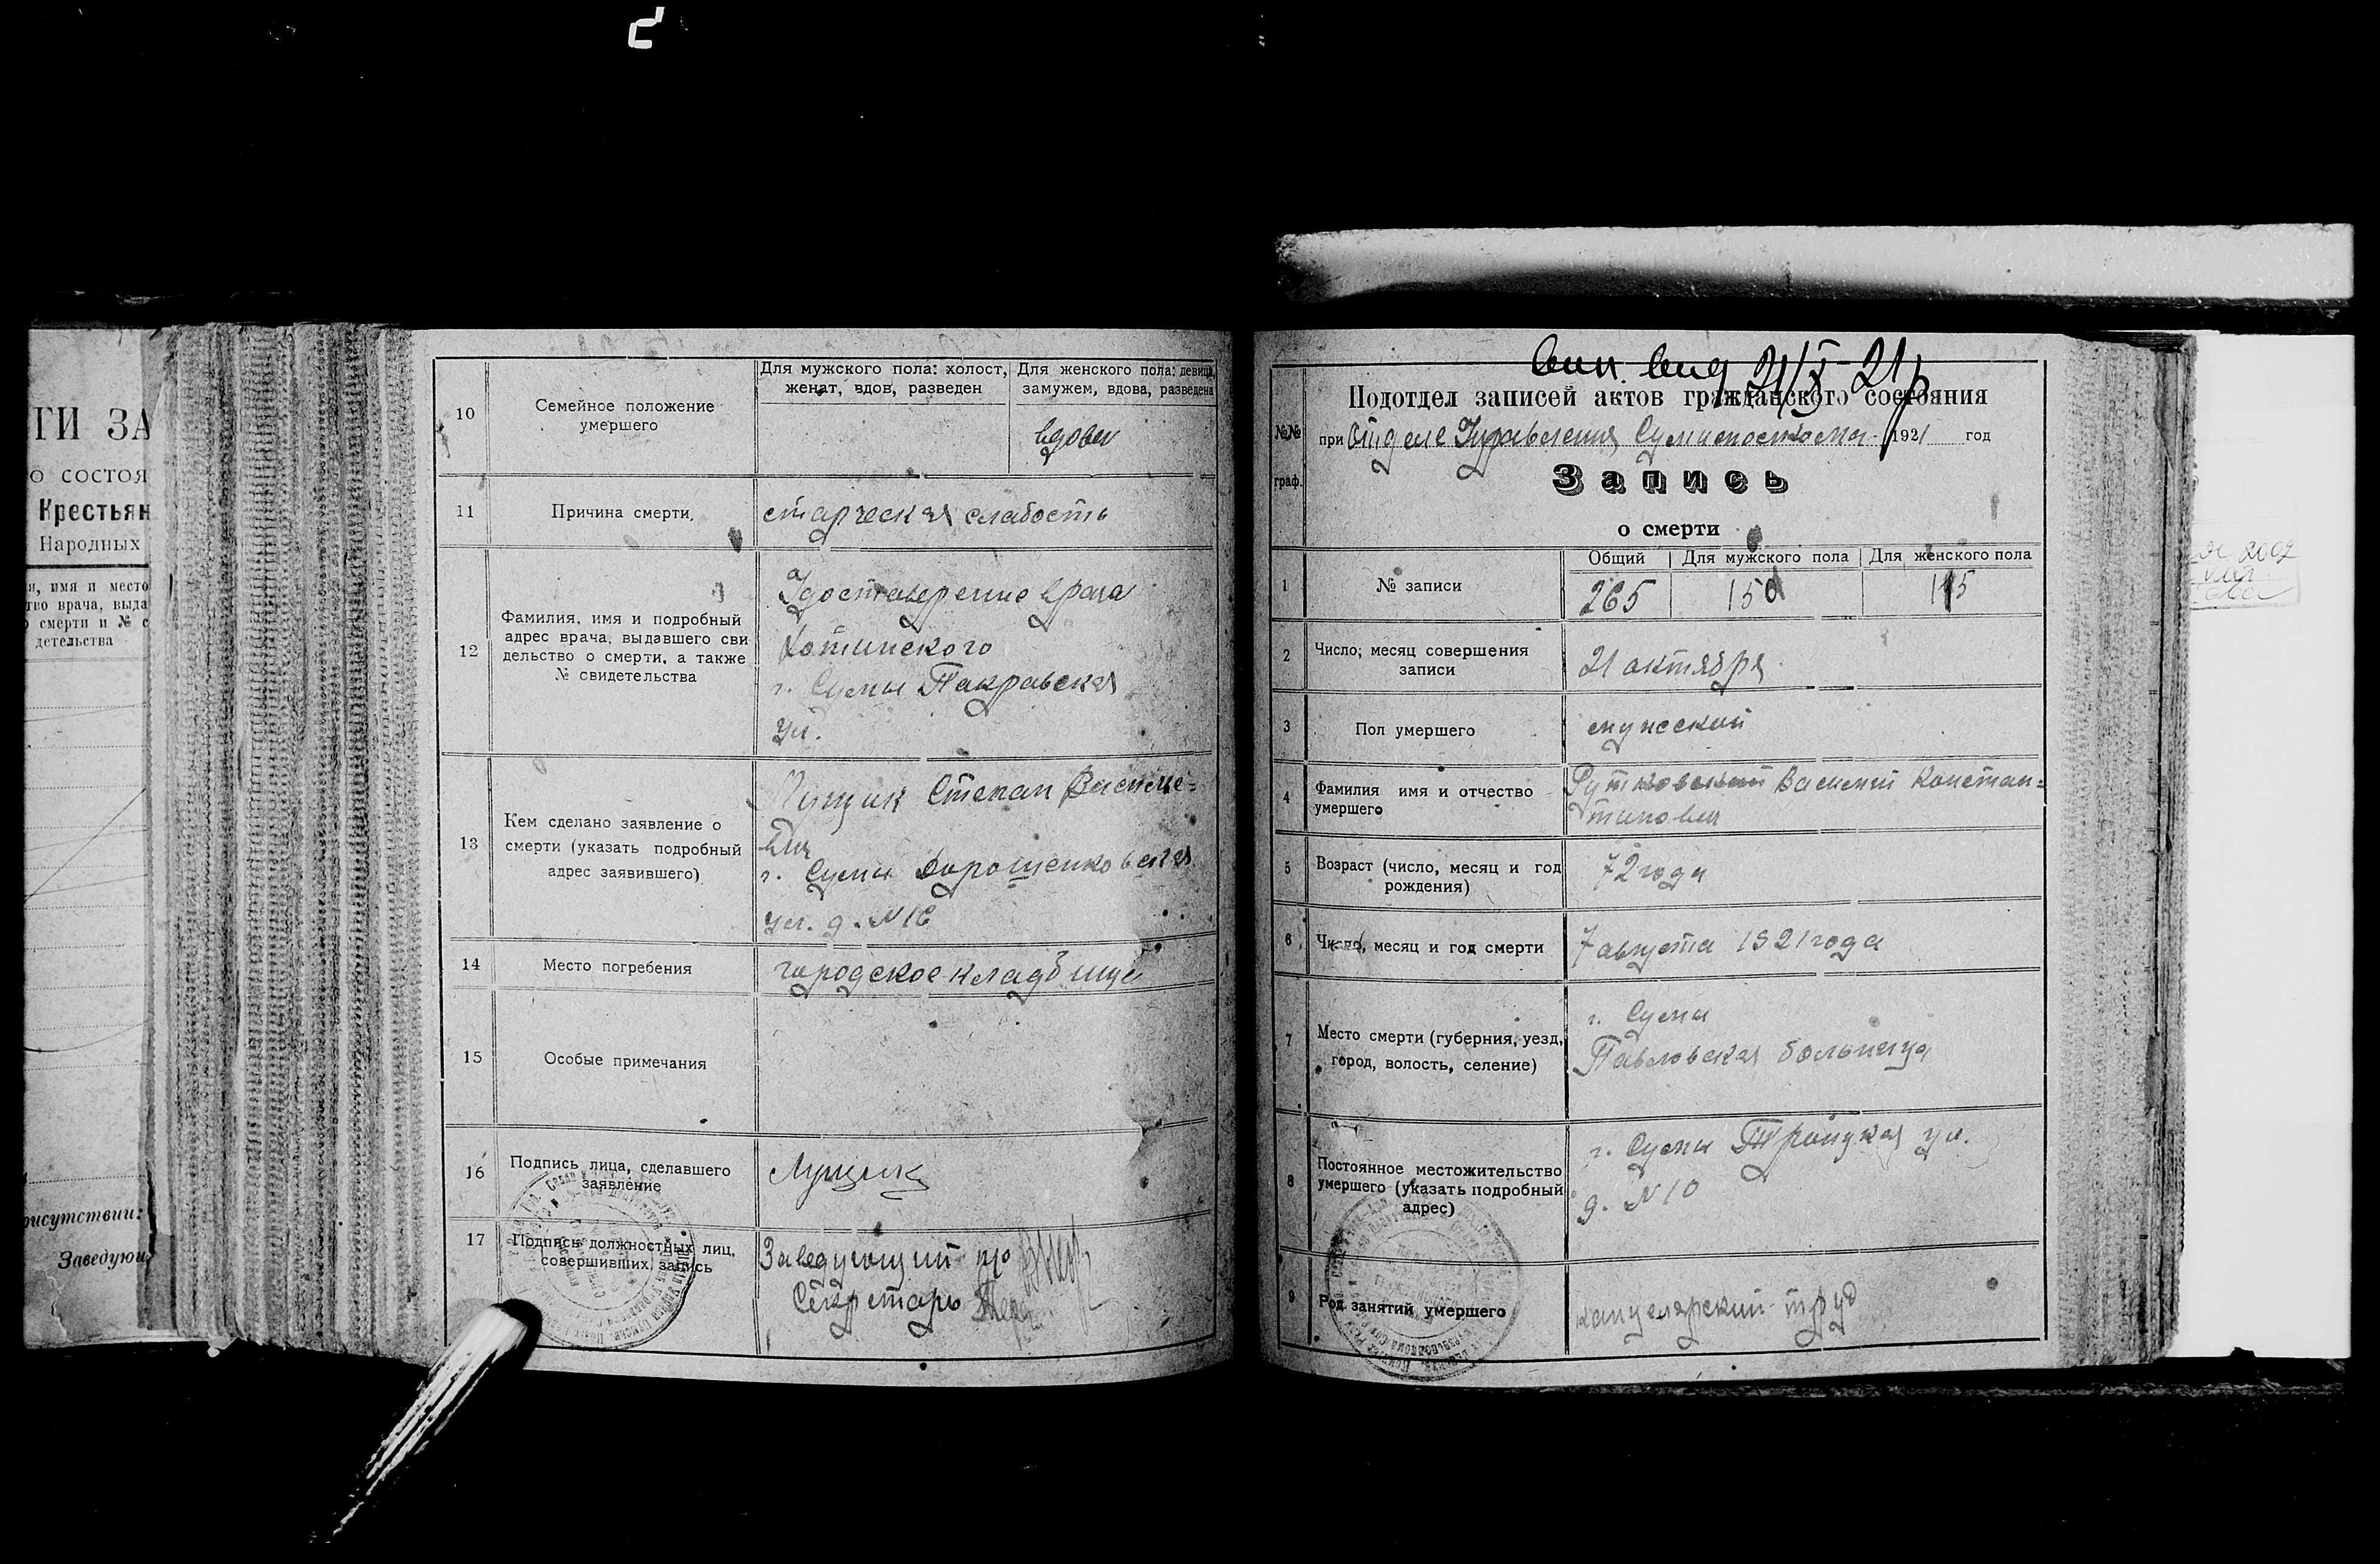 ГИ ЗА
о состоя
Крестьян
Народных
я, имя и место
тво врача, выда
о смерти и № с
детельства
рисутствии:
Заведующ
10
Семейное положение
умершего
Для мужского пола: холост,
женат, вдов, разведен
Для женского пола: девица,
замужем, вдова, разведена
вдовец
11
Причина смерти.
старческая слабость
12
Фамилия, имя и подробный
адрес врача, выдавшего сви
дельство о смерти, а также
№ свидетельства
Удостоверение врача
Хотинского
г. Сумы Покровская
ул.
13
Кем сделано заявление о
смерти (указать подробный
адрес заявившего)
Лущик Степан Василье=
вич
г. Сумы Дорошенковская
ул. д. №16
14
Место погребения
городское кладбище
15
Особые примечания
16
Подпись лица, сделавшего
заявление
Лущик
17
Подпись должностных лиц,
совершивших запись
Заведующий п/о
Секретарь
21/X-21 р
№№
граф.
Подотдел записей актов гражданского состояния
при Отделе Управления Сумисполкома 1921 год
Запись
о смерти
1
№ записи
Общий
Для мужского пола
Для женского пола
265
150
115
2
Число, месяц совершения
записи
21 октября
3
Пол умершего
мужской
4
Фамилия имя и отчество
умершего
Рутковский Василий Констан=
тинович
5
Возраст (число, месяц и год
рождения)
72 года
6
Число, месяц и год смерти
7 августа 1921 года
7
Место смерти (губерния, уезд,
город, волость, селение)
г. Сумы
Павловская больница
8
Постоянное местожительство
умершего (указать подробный
адрес)
г. Сумы Троицкая ул.
д. №10
9
Род занятий умершего
канцелярский труд